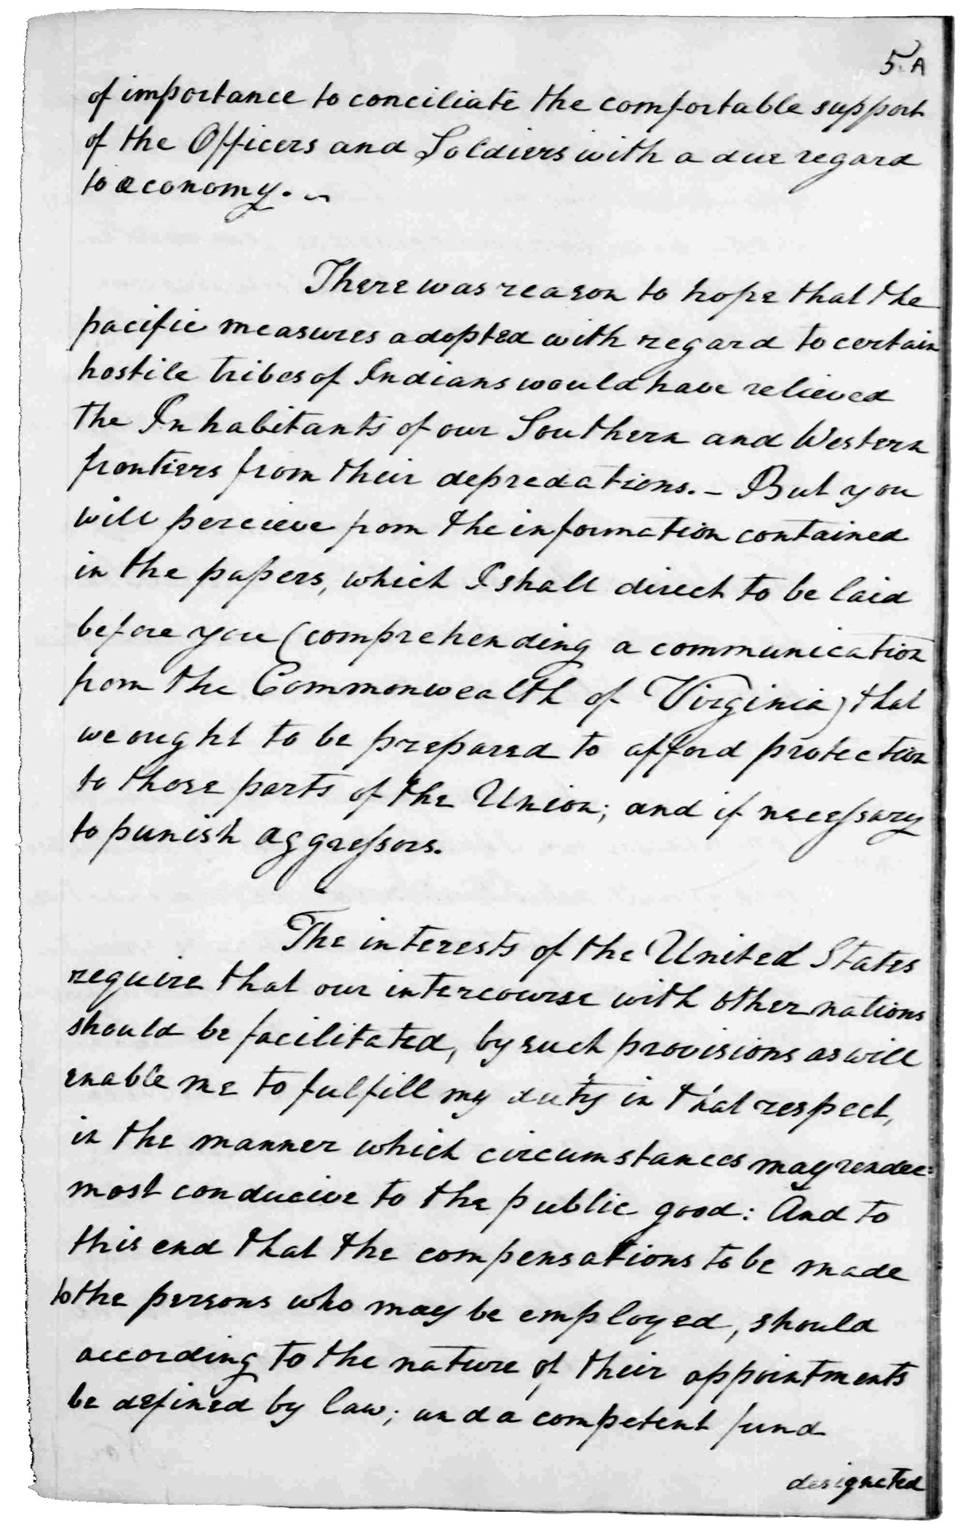 5.A
of importance to conciliate the comfortable support
of the Officers and Soldiers with a due regard
to œconomy. ~
There was reason to hope that the
pacific measures adopted with regard to certain
hostile tribes of Indians would have relieved
the Inhabitants of our Southern and Western
frontiers from their depredations. – But you
will percieve from the information contained
in the papers, which I shall direct to be laid
before you (comprehending a communication
from the Commonwealth of Virginia) that
we ought to be prepared to afford protection
to those parts of the Union; and if necessary
to punish aggressors.
The interests of the United States
require that our intercourse with other nations
should be facilitated, by such provisions as will
enable me to fulfill my duty in that respect,
in the manner which circumstances may render
most conducive to the public good: And to
this end that the compensations to be made
to the persons who may be employed, should
according to the nature of their appointments
be defined by law; and a competent fund
designated